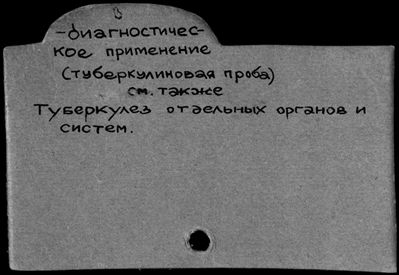 -диагностичес-
кое применение
(туберкулиновая проба)
см. также
Туберкулез отдельных органов и
систем.